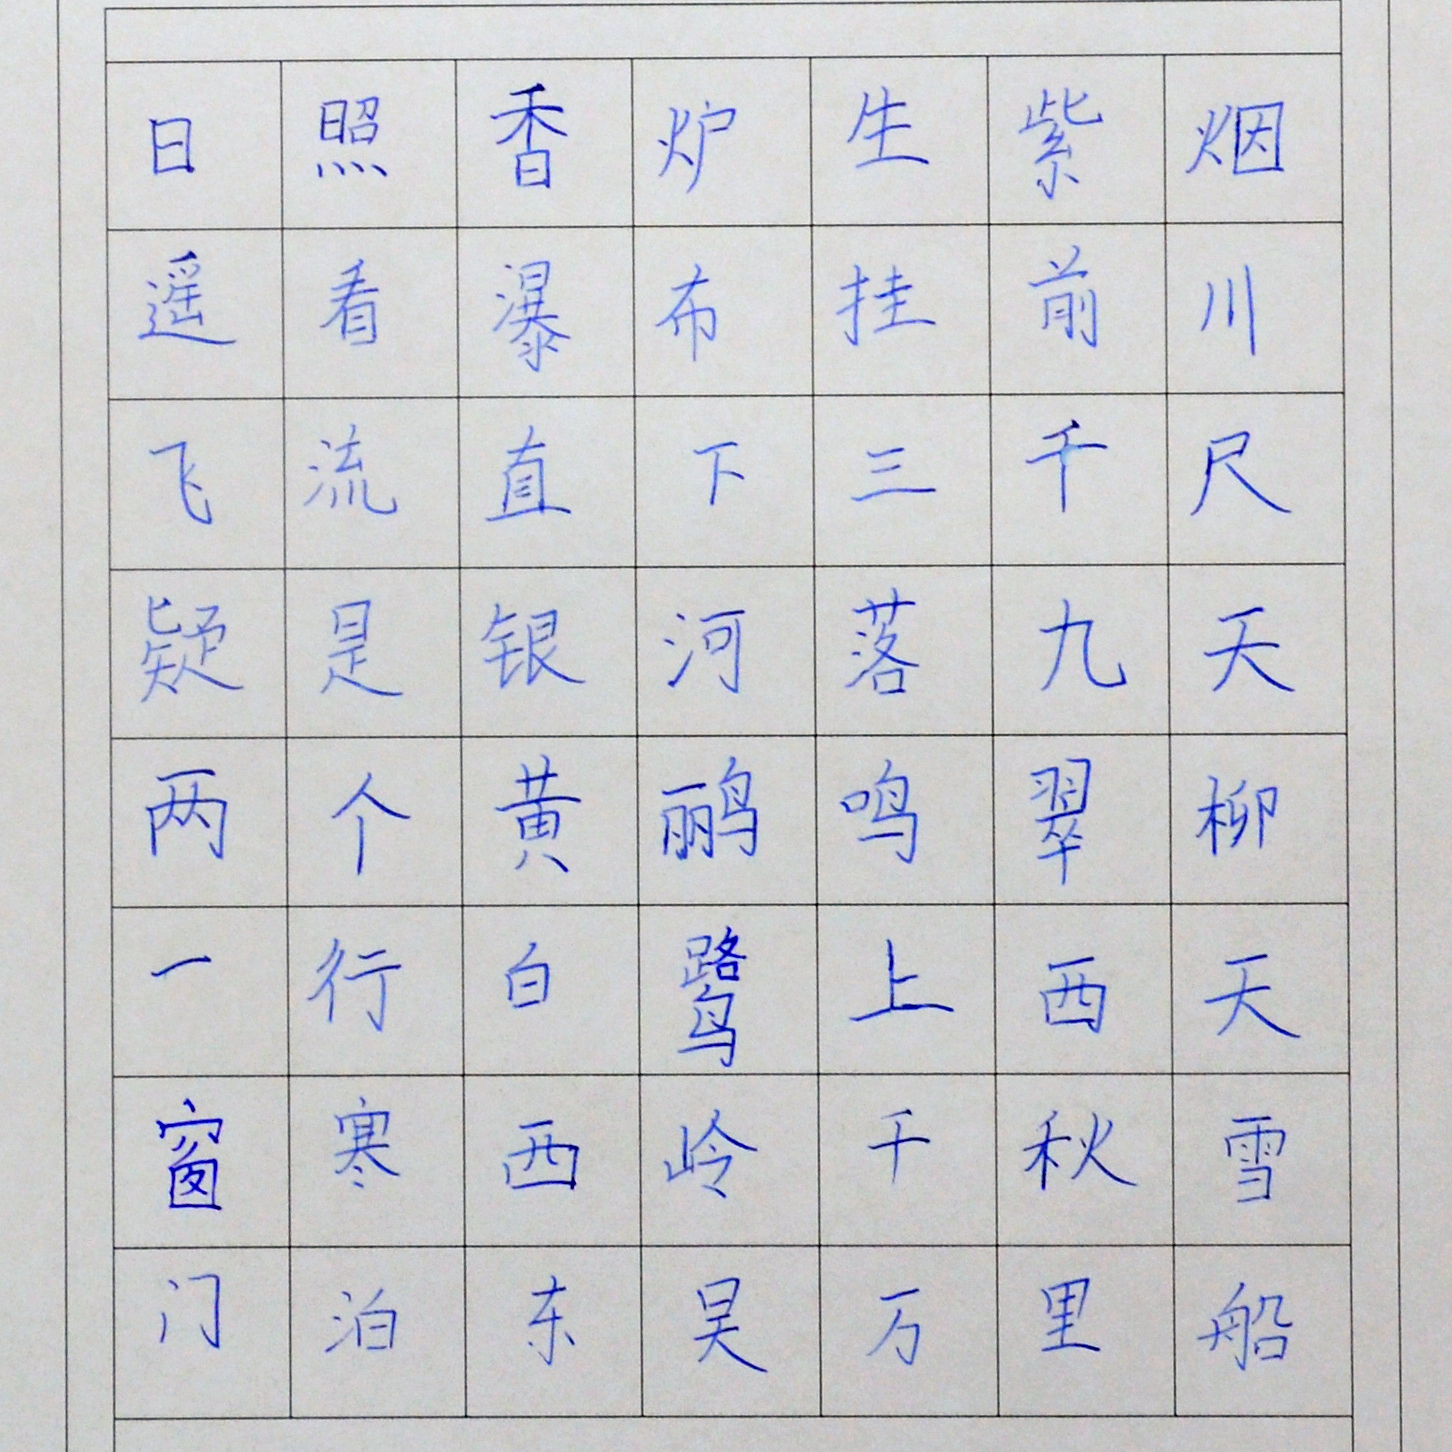 日照香炉生紫烟
遥看瀑布挂前川
飞流直下三千尺
疑是银河落九天
两个黄鹂鸣翠柳
一行白鹭上西天
窗寒西岭千秋雪
门泊东昊万里船